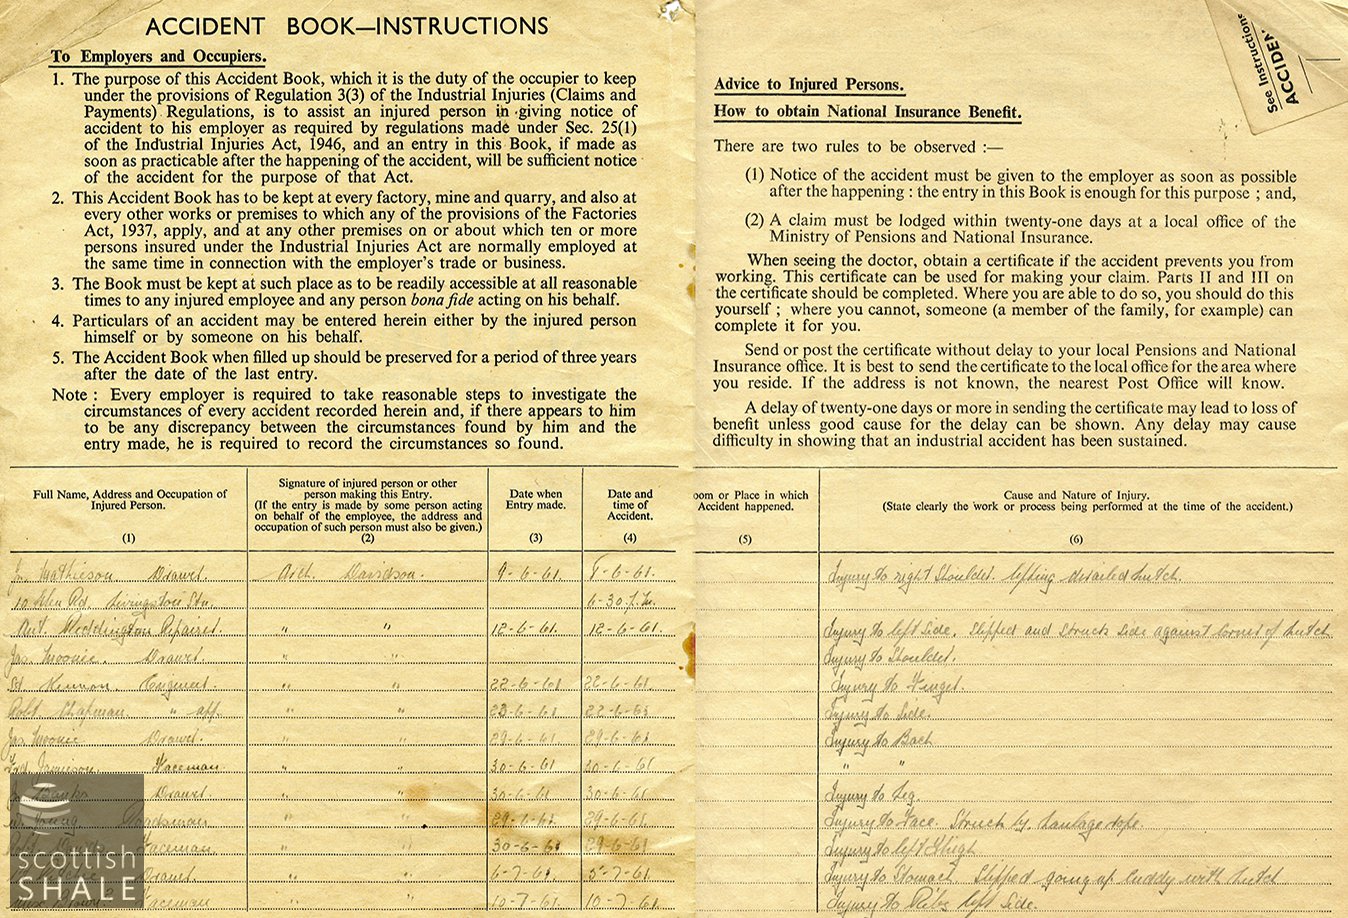 ACCIDENT BOOK—INSTRUCTIONS
To Employers and Occupiers.
1. The purpose of this Accident Book, which it is the duty of the occupier to keep
under the provisions of Regulation 3(3) of the Industrial Injuries (Claims and
Payments) Regulations, is to assist an injured person in giving notice of
accident to his employer as required by regulations made under Sec. 25(1)
of the Industrial Injuries Act, 1946, and an entry in this Book, if made as
soon as practicable after the happening of the accident, will be sufficient notice
of the accident for the purpose of that Act.
2. This Accident Book has to be kept at every factory, mine and quarry, and also at
every other works or premises to which any of the provisions of the Factories
Act, 1937, apply, and at any other premises on or about which ten or more
persons insured under the Industrial Injuries Act are normally employed at
the same time in connection with the employer's trade or business.
3. The Book must be kept at such place as to be readily accessible at all reasonable
times to any injured employee and any person bona fide acting on his behalf.
4. Particulars of an accident may be entered herein either by the injured person
himself or by someone on his behalf.
5. The Accident Book when filled up should be preserved for a period of three years
after the date of the last entry.
Note : Every employer is required to take reasonable steps to investigate the
circumstances of every accident recorded herein and, if there appears to him
to be any discrepancy between the circumstances found by him and the
entry made, he is required to record the circumstances so found.
See Instructions
ACCIDEN
Advice to Injured Persons.
How to obtain National Insurance Benefit.
There are two rules to be observed :—
(1) Notice of the accident must be given to the employer as soon as possible
after the happening : the entry in this Book is enough for this purpose ; and,
(2) A claim must be lodged within twenty-one days at a local office of the
Ministry of Pensions and National Insurance.
When seeing the doctor, obtain a certificate if the accident prevents you from
working. This certificate can be used for making your claim. Parts II and III on
the certificate should be completed. Where you are able to do so, you should do this
yourself ; where you cannot, someone (a member of the family, for example) can
complete it for you.
Send or post the certificate without delay to your local Pensions and National
Insurance office. It is best to send the certificate to the local office for the area where
you reside. If the address is not known, the nearest Post Office will know.
A delay of twenty-one days or more in sending the certificate may lead to loss of
benefit unless good cause for the delay can be shown. Any delay may cause
difficulty in showing that an industrial accident has been sustained.
Full Name, Address and Occupation of
Injured Person.
(1)
Signature of injured person or other
person making this Entry.
(If the entry is made by some person acting
on behalf of the employee, the address and
occupation of such person must also be given.)
(2)
Date when
Entry made.
(3)
Date and
time of
Accident.
(4)
oom or Place in which
Accident happened.
(5)
Cause and Nature of Injury.
(State clearly the work or process being performed at the time of the accident.)
(6)
Mathieson Drawer. Arch. Davidson. 9-6-61. 8-6-61. Injury to right Shoulder. lifting derailed hutch.
Rd. Livingston Stn. 6-30 P.M.
Weddington Repairer. " " 12-6-61. 12-6-61. Injury to left side. Slipped and struck side against corner of hutch
Jas. Moonie. Drawer. " " Injury to Shoulder.
Engineer. " " 22-6-61 22-6-61. Injury to Finger.
Robt Chapman. " app. " " 23-6-61 22-6-61 Injury to Side.
Jas Moonie Drawer. " " 29-6-61. 29-6-61 Injury to Back
Jamieson. Faceman. " " 30-6-61 30-6-61. " "
Banks Drawer. " " 30-6-61 30-6-61. Injury to Leg.
Young Roadsman " " 29-6-61. 29-6-61. Injury to Face. Struck by haulage rope.
Faceman. " " 30-6-61 29-6-61 Injury to left Thigh
Drawer " " 6-7-61 5-7-61. Injury to Stomach. Slipped going up cuddy with hutch
Faceman " " 10-7-61 10-7-61. Injury to Ribs left side.
scottish
SHALE